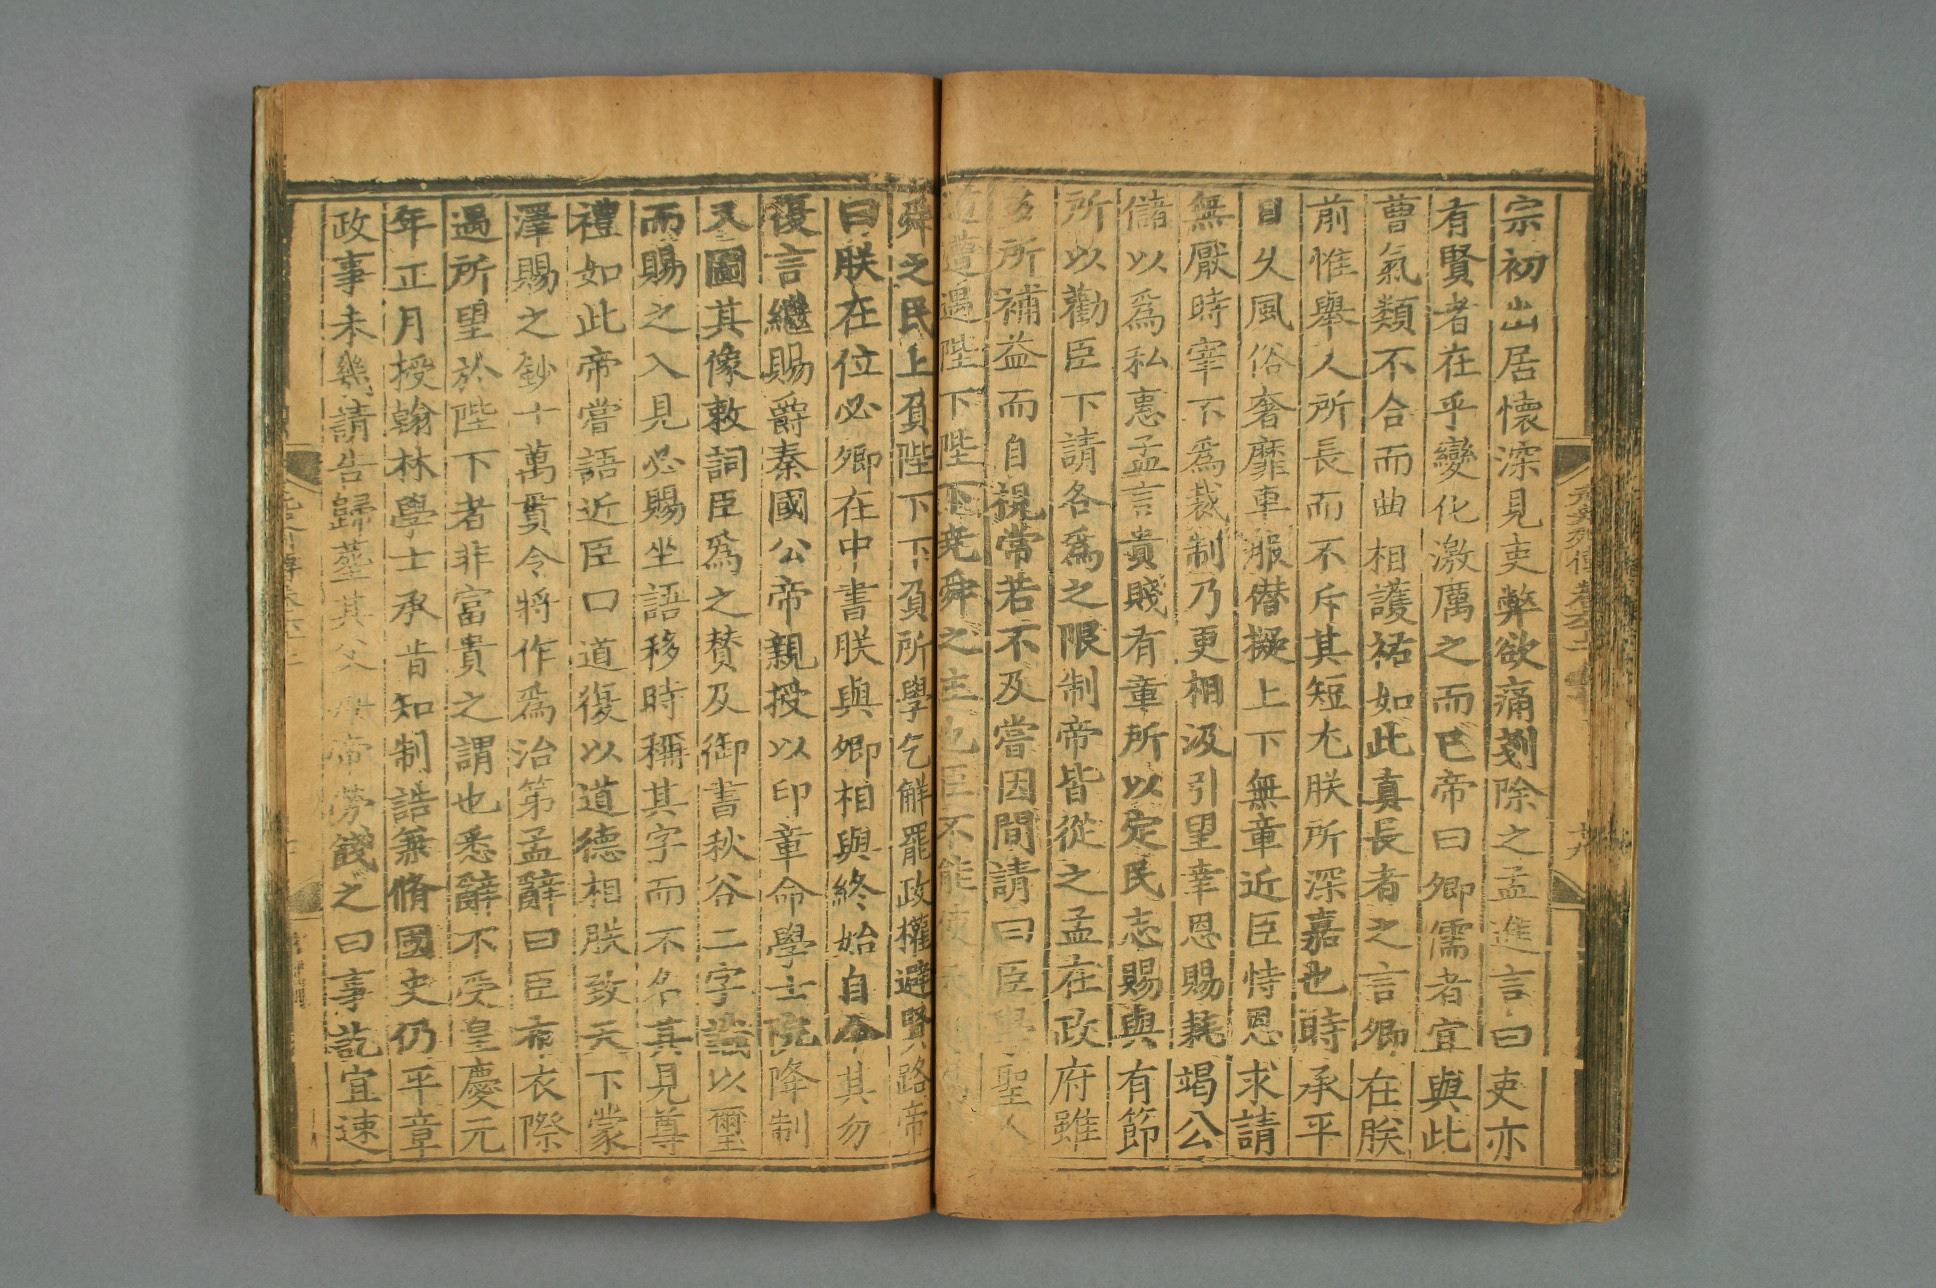 宗初出居懷深見吏弊欲痛剗除之孟進言曰吏亦
有賢者在乎變化激厲之而已帝曰卿儒者宜與此
曹氣類不合而曲相護祐如此真長者之言卿在朕
前惟舉人所長而不斥其短尤朕所深嘉也時承平
日久風俗奢靡車服僣擬上下無章近臣恃恩求請
無厭時宰不爲裁制乃更相汲引望幸恩賜耗竭公
儲以爲私惠孟言貴賤有章所以定民志賜與有節
所以勸臣下請各爲之限制帝皆從之孟在政府雖
多所補益而自視常若不及嘗因間請曰臣學聖人
遭遇陛下陛下堯舜之主也臣不能使
舜之民上負陛下下負所學乞解罷政權避賢路帝
曰朕在位必卿在中書朕與卿相與終始自今其勿
復言繼賜爵秦國公帝親授以印章命學士院降制
又圖其像敕詞臣爲之賛及御書秋谷二字識以璽
而賜之入見必賜坐語移時稱其字而不名其見尊
禮如此帝嘗語近臣曰道復以道德相朕致天下蒙
澤賜之鈔十萬貫令將作爲治第孟辭曰臣布衣際
遇所望於陛下者非富貴之謂也悉辭不受皇慶元
年正月授翰林學士承旨知制誥兼脩國史仍平章
政事未幾請告歸葬其父母帝勞餞之曰事訖宜速